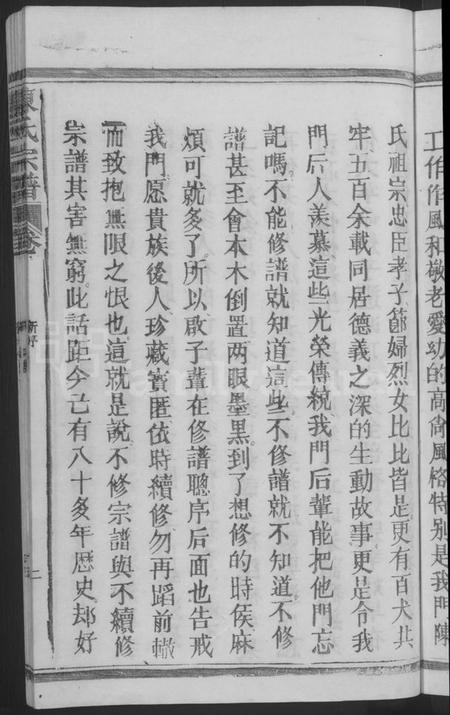 工作作風和敬老愛幼的高尙風格特别是我門陳
氏祖宗忠臣孝子節婦烈女比比皆是更有百犬共
牢五百余載同居德義之深的生動故事更是令我
門后人羡慕這些光榮傳統我門后輩能把他門忘
記嗎不能修譜就知道這些不修譜就不知道不修
譜甚至會本木倒置两眼墨黑到了想修的時侯麻
煩可就多了所以啟子輩在修譜聰序后面也告戒
我門愿貴族後人珍藏寳匣依時續修勿再蹈前轍
而致抱無限之恨也這就是說不修宗譜與不續修
宗譜其害無窮此話距今已有八十多年歷史却好
陳氏宗譜 卷
新序
二